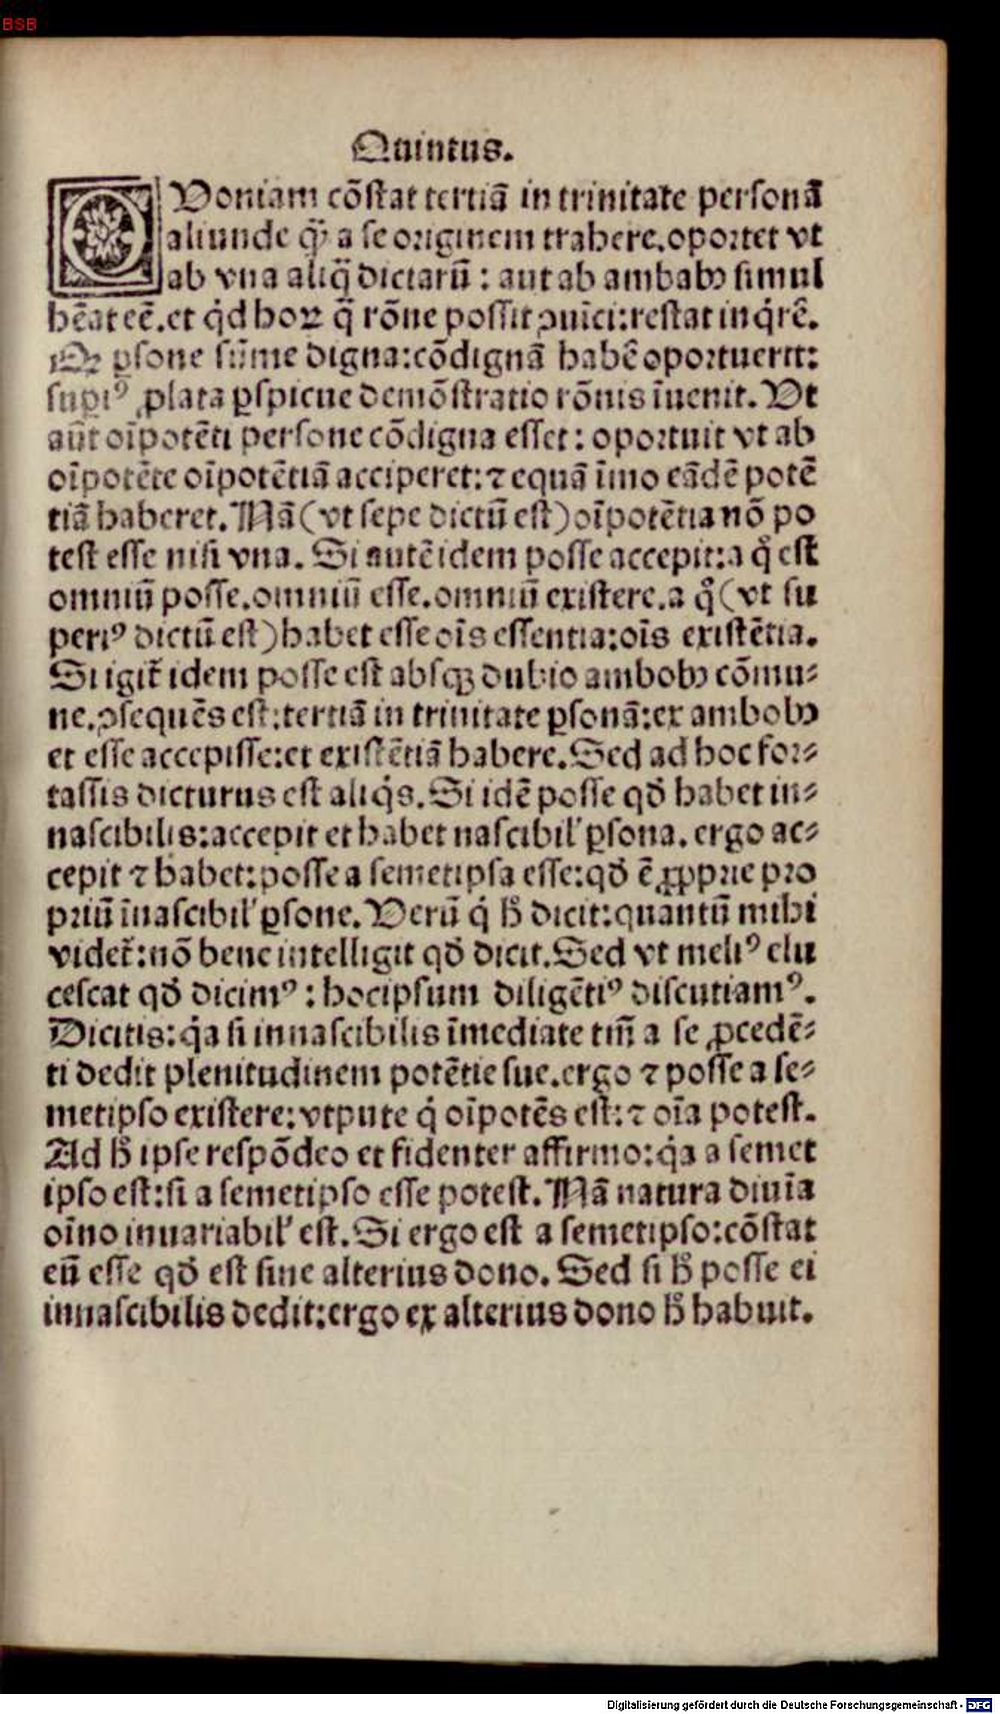 BSB
Quintus.
QUoniam cõstat tertiã in trinitate personã
aliunde q̃ a se originem trahere.oportet vt
ab vna aliq̃ dictarũ : aut ab ambabꝰ simul
hẽat eẽ.et q̇d hoꝝ q̃ rõne possit ↄuici:restat inq̇rẽ.
Qꝫ ꝑsone sũme digna:cõdignã habẽ oportuerit:
supiꝰ ꝓlata ꝑspicue demõstratio rõnis īuenit. Vt
aũt oīpotẽti persone cõdigna esset : oportuit vt ab
oīpotẽte oīpotẽtiã acciperet: ⁊ equã īmo eãdẽ potẽ
tiã haberet. Nã (vt sepe dictũ est) oīpotẽtia nõ po
test esse nisi vna. Si autẽ idem posse accepit:a q̊ est
omniũ posse.omniũ esse.omniũ existere.a q̊ (vt su
periꝰ dictũ est) habet esse oīs essentia:oīs existẽtia.
Si igit̃ idem posse est absqꝫ dubio ambobꝰ cõmu⸗
ne.ↄsequẽs est:tertiã in trinitate ꝑsonã:ex ambobꝰ
et esse accepisse:et existẽtiã habere. Sed ad hoc for⸗
tassis dicturus est aliq̇s. Si idẽ posse qđ habet in⸗
nascibilis:accepit et habet nascibil' ꝑsona. ergo ac⸗
cepit ⁊ habet:posse a semetipsa esse:qđ ẽ ꝓprie pro
priũ īnascibil' ꝑsone. Verũ q̇ ħ dicit:quantũ mihi
videt̃:nõ bene intelligit qđ dicit. Sed vt meliꝰ elu
cescat qđ dicimꝰ : hocipsum diligẽtiꝰ discutiamꝰ.
Dicitis:q̇a si innascibilis īmediate tm̃ a se ꝓcedẽ⸗
ti dedit plenitudinem potẽtie sue.ergo ⁊ posse a se⸗
metipso existere:vtpute q̇ oīpotẽs est: ⁊ oīa potest.
Ad ħ ipse respõdeo et fidenter affirmo:q̇a a semet
ipso est:si a semetipso esse potest. Nã natura diuīa
oīno inuariabil' est. Si ergo est a semetipso:cõstat
eũ esse qđ est sine alterius dono. Sed si ħ posse ei
innascibilis dedit:ergo ex alterius dono ħ habuit.
Digitalisierung gefördert durch die Deutsche Forschungsgemeinschaft - DFG